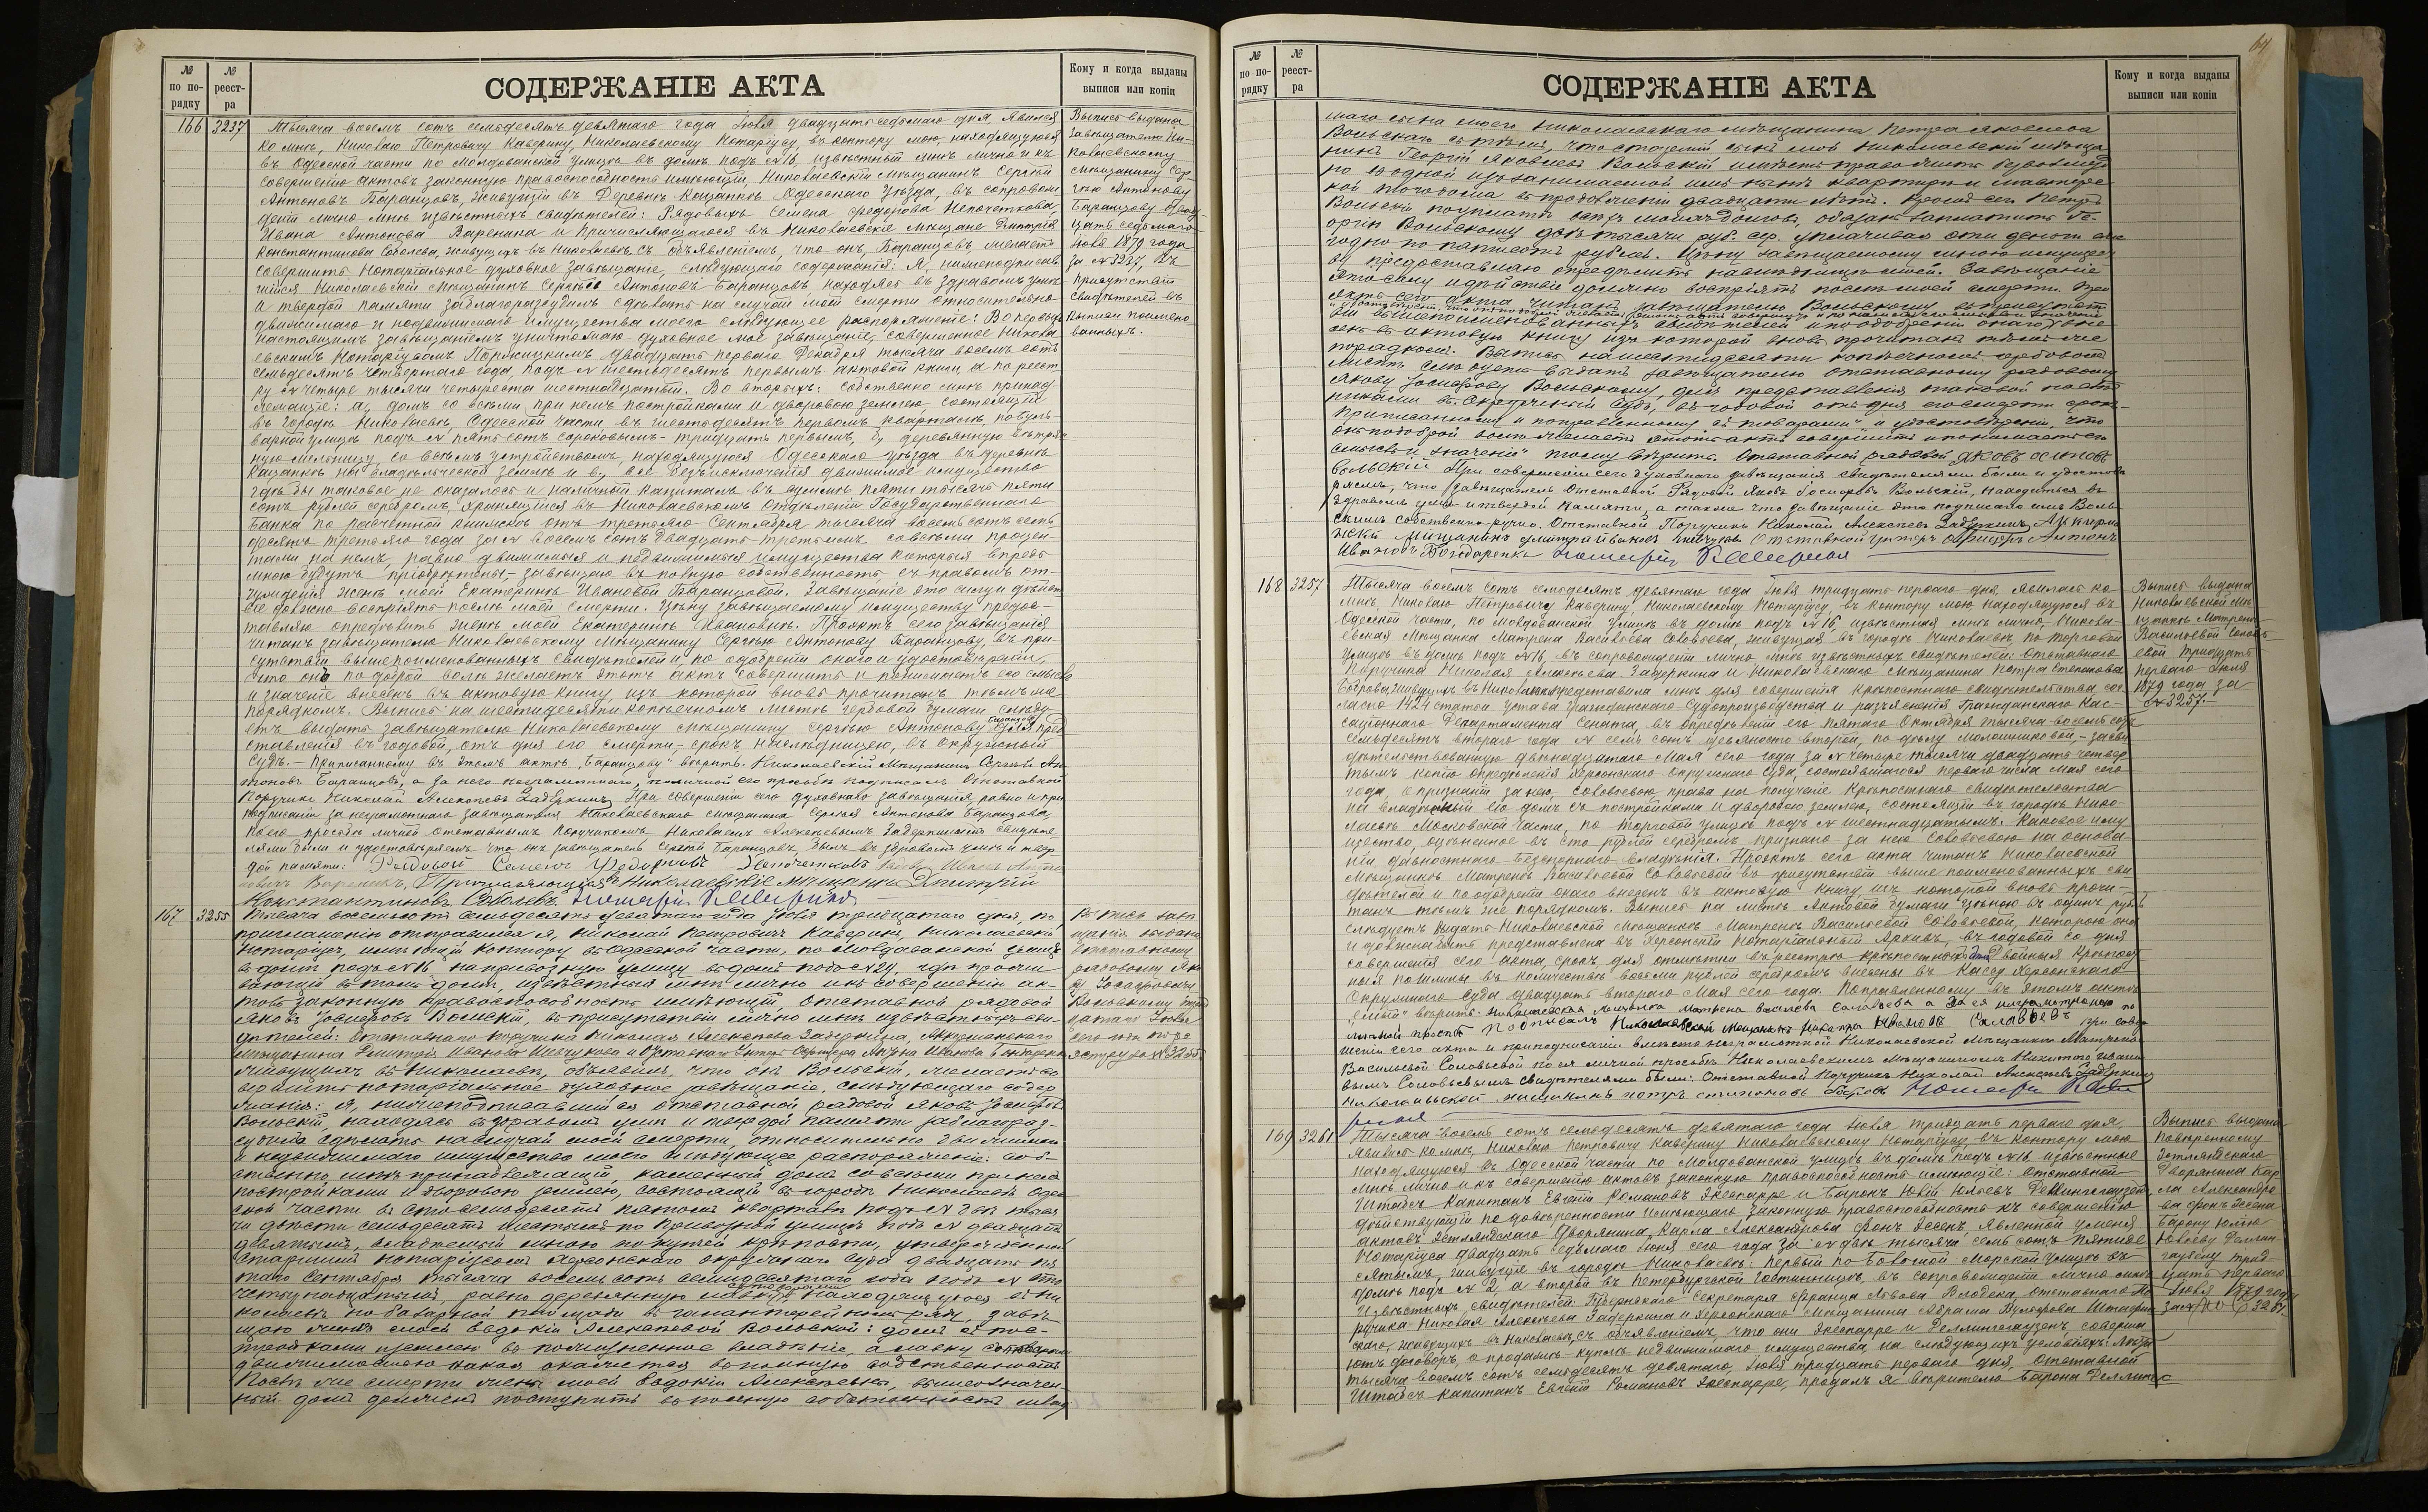 № по по-рядку
№ реест-ра
СОДЕРЖАНІЕ АКТА
Кому и когда выданы выписи или копіи
166 3237
Тысяча восемь сотъ семьдесятъ девятаго года Іюля двадцать седьмаго дня явился
ко мнѣ, Николаю Петровичу Каверину, Николаевскому Нотаріусу, въ контору мою, находящуюся
въ Одесской части по Молдованской улицѣ въ домѣ подъ №16, извѣстный мнѣ лично и къ
совершенію актовъ законную правоспособность имѣющій, Николаевскій мѣщанинъ Сергѣй
Антоновъ Баранцовъ, живущій въ Деревнѣ Кацапкѣ Одесскаго уѣзда, въ сопровож
деніи лично мнѣ извѣстныхъ свидѣтелей: Рядовыхъ Семена Федорова Непочеткова,
Ивана Антонова Вареника и Причисляющагося въ Николаевскіе мѣщане Дмитрія
Константинова Соболева, живущихъ въ Николаевѣ, съ объявленіемъ, что онъ, Баранцовъ желаетъ
совершить Нотаріальное духовное завѣщаніе, слѣдующаго содержанія: Я, нижеподписав
шійся Николаевскій мѣщанинъ Сергѣй Антоновъ Баранцовъ находясь въ здравомъ умѣ
и твердой памяти заблагоразсудилъ сдѣлать на случай моей смерти относительно
движимаго и недвижимаго имущества моего слѣдующее распоряженіе: Во первыхъ
настоящимъ завѣщаніемъ уничтожаю духовное мое завѣщаніе, совершенное Никола
евскимъ Нотаріусомъ двадцать перваго Декабря тысяча восемь сотъ
семьдесятъ четвертаго года, подъ № шестьдесятъ первымъ актовой книги, а по реест
ру № четыре тысячи четыреста шестнадцатый. Во вторыхъ: собственно мнѣ принад-
лежащіе: а, домъ со всѣми при немъ постройками и дворовою землею, состоящій
въ городѣ Николаевѣ, Одесской части, въ шестьдесятъ первомъ кварталѣ, по Буль-
варной улицѣ подъ № пять сотъ сороковымъ - тридцать первымъ, б, деревянную вѣтря
ную мельницу, со всѣмъ устройствомъ, находящуюся Одесскаго уѣзда въ деревнѣ
Кацапкѣ на владѣльческой землѣ и в, все безъ исключенія движимое имущество
гдѣ бы таковое не оказалось и наличный капиталъ въ суммѣ пяти тысячъ пяти
сотъ рублей серебромъ, хранящійся въ Николаевскомъ Отдѣленіи Государственнаго
Банка по расчетной книжкѣ отъ третьяго Сентября тысяча восемь сотъ семь
десятъ третьяго года за № восемь сотъ двадцать третьимъ со всѣми процен-
тами на немъ, равно движимыя и недвижимыя имущества которыя впредь
мною будутъ пріобрѣтены, - завѣщаю въ полную собственность съ правомъ от-
чужденія женѣ моей Екатеринѣ Ивановой Баранцовой. Завѣщаніе это силу и дѣйст
віе должно воспріять послѣ моей смерти. Цѣну завѣщаемому имуществу предос-
тавляю опредѣлить женѣ моей Екатеринѣ Ивановнѣ. Проэктъ сего завѣщанія
читанъ завѣщателю Николаевскому мѣщанину Сергѣю Антонову Баранцову, въ при-
сутствіи вышепоименованныхъ свидѣтелей и, по одобреніи онаго и удостовѣреніи,
что онъ по доброй волѣ желаетъ этотъ актъ совершить и понимаетъ его смыслъ
и значеніе внесенъ въ актовую книгу, изъ которой вновь прочитанъ тѣмъ же
порядкомъ. Выпись на шестидесяти копѣечномъ листѣ гербовой бумаги слѣду
етъ выдать завѣщателю Николаевскому мѣщанину Сергѣю Антонову Баранцову для пред
ставленія въ годовой, отъ дня его смерти, - срокъ, наслѣдницею, въ Окружный
Судъ. - Приписанному въ этомъ актѣ „Баранцову" вѣрить. Николаевскій Мѣщанинъ Сергѣй Ан
тоновъ Баранцовъ, а за него неграмотнаго, по личной его просьбѣ подписалъ Отставной
Поручикъ Николай Алексѣевъ Задеркинъ. При совершеніи сего духовнаго завѣщанія, равно и при
подписаніи за неграмотнаго завѣщателя Николаевскаго мѣщанина Сергѣя Антонова Баранцова,
по его просьбѣ личной отставнымъ Поручикомъ Николаемъ Алексѣевымъ Задеркинымъ свидѣте
лями были и удостовѣряемъ что онъ завѣщатель Сергѣй Баранцовъ, былъ въ здравомъ умѣ и твер
дой памяти: Рядовой Семенъ Федоровъ Непочетковъ Иванъ Анто
новичъ Вареникъ, Причисляющійся въ Николаевскіе мѣщане Дмитрій
Константиновъ Соболевъ. Нотаріусъ Каверинъ
Выпись выдана
завѣщателю Ни-
колаевскому
мѣщанину Сер-
гѣю Антонову
Баранцову двад-
цать седьмаго
Іюля 1879 года
за №3237, въ
присутствіи
свидѣтелей въ
выписи поимено-
ванныхъ.
167 3255
Тысяча восемьсотъ семьдесятъ девятаго года Іюля тридцатаго дня, по
приглашенію отправился я, Николай Петровичъ Каверинъ, Николаевскій
Нотаріусъ, имѣющій контору въ Одесской части, по Молдаванской улицѣ
въ домѣ подъ №16, на Привозную улицу въ домъ подъ №29, гдѣ прожи
вающій въ томъ домѣ, извѣстный мнѣ лично и къ совершенію ак-
товъ законную правоспособность имѣющій, отставной рядовой
Яковъ Іосифовъ Вольскій, въ присутствіи лично мнѣ извѣстныхъ сви-
дѣтелей: Отставнаго поручика Николая Алексѣева Задеркина, Аккерманскаго
мѣщанина Дмитрія Иванова Шевчукова и Отставнаго Унтеръ Офицера Антона Иванова Бондаренка
живущихъ въ Николаевѣ, объявилъ, что онъ Вольскій, желаетъ со
вершить нотаріальное духовное завѣщаніе, слѣдующаго содер
жанія: Я, нижеподписавшійся отставной рядовой Яковъ Іосифовъ
Вольскій, находясь въ здравомъ умѣ и твердой памяти заблагораз-
судилъ сдѣлать на случай моей смерти, относительно движимаго
и недвижимаго имущества моего слѣдующее распоряженіе: соб-
ственно мнѣ принадлежащій, каменный домъ со всѣми при немъ
постройками и дворовою землею, состоящій въ городѣ Николаевѣ Одес
ской части въ сто восемьдесятъ пятомъ кварталѣ подъ № двѣ тыся
чи двѣсти семьдесятъ шестымъ по Привозной улицѣ подъ № двадцать
девятымъ, владѣемый мною по купчей крѣпости, утвержденной
Старшимъ Нотаріусомъ Херсонскаго Окружнаго Суда двадцать пя
таго Сентября тысяча восемь сотъ семидесятаго года подъ № сто
четырнадцатымъ, равно деревянную лавку съ товарами находящуюся въ Ни
колаевѣ на базарной площади въ галантерейномъ ряду завѣ
щаю женѣ моей Евдокіи Алексѣевой Вольской: домъ съ пос-
тройками и землею въ пожизненное владѣніе, а лавку съ товарами
движимостью какая окажется въ полную собственность
Послѣ же смерти жены моей Евдокіи Алексѣевны, вышеозначен
ный домъ долженъ поступить въ полную собственность
Выпись завѣ
щанія выдана
отставному
рядовому Яко
ву Іосифовичу
Вольскому трид
цатаго Іюля
по ре
эстру за №3255
№ по по-рядку
№ реест-ра
СОДЕРЖАНІЕ АКТА
Кому и когда выданы выписи или копіи
64
сына моего Николаевскаго мѣщанина Петра Яковлева
Вольскаго съ тѣмъ, что старшій сынъ мой Николаевскій мѣща
нинъ Георгій Яковлевъ Вольскій имѣетъ право жить безвозмезд
но въ одной изъ занимаемой имъ нынѣ квартирѣ и мастерс
кой того дома въ продолженіи двадцати лѣтъ. Кромѣ сего Петръ
Вольскій обязанъ заплатить Ге-
оргію Вольскому двѣ тысячи руб. сер. уплачивая эти деньги еже
годно по пятисотъ рублей. Цѣну завѣщаемому мною имущест
ву предоставляю опредѣлить наслѣдницѣ моей. Завѣщаніе
это силу и дѣйствіе должно воспріять послѣ моей смерти. Про
эктъ сего акта читанъ завѣщателю Вольскому въ присутст
віи вышепоименованныхъ свидѣтелей и по одобреніи онаго вне
сенъ въ актовую книгу изъ которой вновь прочитанъ тѣмъ же
порядкомъ. Выпись на шестидесяти копѣечномъ гербовомъ
листѣ слѣдуетъ выдать завѣщателю отставному рядовому
Якову Іосифову Вольскому, для представленія таковой наслѣд
никами въ Окружный Судъ, въ годовой отъ дня его смерти срокъ.
Приписанному и поправленному „съ товарами" „и удостовѣреніи, что
онъ по доброй волѣ желаетъ этотъ актъ совершить и понимаетъ его
смыслъ и значеніе" тому вѣрить. Отставной рядовой Яковъ Осиповъ
Вольскій При совершеніи сего духовнаго завѣщанія свидѣтелями были и удостовѣ
ряемъ, что завѣщатель Отставной Рядовой Яковъ Іосифовъ Вольскій, находиться въ
здравомъ умѣ и твердой памяти, а также что завѣщаніе это подписано имъ Воль
скимъ собственно-ручно. Отставной Поручикъ Николай Алексѣевъ Задеркинъ, Аккерма
нскій Мѣщанинъ Дмитрій Ивановъ Шевчуковъ Отставной Унтеръ Офицеръ Антонъ
Ивановъ Бондаренко Нотаріусъ Каверинъ
168 3257
Тысяча восемь сотъ семьдесятъ девятаго года Іюля тридцать перваго дня, явилась ко
мнѣ, Николаю Петровичу Каверину, Николаевскому Нотаріусу, въ контору мою, находящуюся въ
Одесской части, по Молдованской улицѣ въ домѣ подъ №16, извѣстная мнѣ лично, Никола-
евская Мѣщанка Матрена Васильева Соловьева, живущая въ городѣ Николаевѣ, по Торговой
улицѣ въ домѣ подъ №16, въ сопровожденіи лично мнѣ извѣстныхъ свидѣтелей: Отставнаго
Поручика Николая Алексѣева Задеркина и Николаевскаго мѣщанина Петра Степанова
Боброва живущихъ въ Николаевѣ и представила мнѣ для совершенія Крѣпостнаго свидѣтельства сог
ласно 1424 статьи Устава Гражданскаго Судопроизводства и разъясненія Гражданскаго Кас-
саціоннаго Департамента Сената, въ опредѣленіи его пятаго Октября тысяча восемь сотъ
семьдесятъ втораго года № семь сотъ девяносто второй, по дѣлу Молошниковой - засви
дѣтельствованную двѣнадцатаго Мая сего года за № четыре тысячи двадцать четвер
тымъ копію опредѣленія Херсонскаго окружнаго Суда, состоявшагося перваго числа Мая сего
года, о признаніи за нею, Соловьевою права на полученіе Крѣпостнаго свидѣтельства
на владѣемый ею домъ съ постройками и дворовою землею, состоящій въ городѣ Нико-
лаевѣ Московской части, по Торговой улицѣ подъ № шестнадцатымъ. Каковое иму
щество, оцѣненное въ сто рублей серебромъ признано за нею Соловьевою на основа-
ніи давностнаго безспорнаго владѣнія. Проэктъ сего акта читанъ Николаевской
Мѣщанкѣ Матренѣ Васильевой Соловьевой въ присутствіи выше поименованныхъ сви
дѣтелей и по одобреніи онаго внесенъ въ актовую книгу изъ которой вновь прочи-
танъ тѣмъ же порядкомъ. Выпись на листѣ Актовой бумаги цѣною въ одинъ рубль
слѣдуетъ выдать Николаевской мѣщанкѣ Матренѣ Васильевой Соловьевой, которою она
и должна быть представлена въ Херсонскій Нотаріальный Архивъ, въ годовой со дня
совершенія сего акта, срокъ для отмѣтки въ реестрѣ крѣпостныхъ дѣлъ. Двойныя Крѣпост
ныя пошлины въ количествѣ восьми рублей серебромъ внесены въ Кассу Херсонскаго
Окружнаго Суда двадцать втораго Мая сего года. Поправленному въ этомъ актѣ
„емый" вѣрить. Николаевская мѣщанка Матрена Васильева Соловьева а за ея неграмотную по
личной просьбѣ подписалъ Николаевскій мещанинъ Никита Ивановъ Салавьевъ При совер
шеніи сего акта и при подписаніи вмѣсто неграмотной Николаевской Мѣщанки Матрены
Васильевой Соловьевой по ея личной просьбѣ Николаевскимъ мѣщаниномъ Никитою Ивано
вымъ Соловьевымъ свидѣтелями были: Отставной Поручикъ Николай Алексѣевъ Задеркинъ
Николаевской мищанинъ Петръ Степановъ Бобровъ Нотаріусъ Каве
ринъ
Выпись выдана
Николаевской Мѣ
щанкѣ Матренѣ
Васильевой Соловь
евой тридцать
перваго Іюля
1879 года за
№3257.
169 3261
Тысяча восемь сотъ семьдесятъ девятаго года Іюля тридцать перваго дня,
явились ко мнѣ, Николаю Петровичу Каверину Николаевскому Нотаріусу, въ контору мою
находящуюся въ Одесской части по Молдованской улицѣ въ домѣ подъ №16 извѣстные
мнѣ лично и къ совершенію актовъ законную правоспособность имѣющіе: Отставной
Штабсъ Капитанъ Евгеній Романовъ Экеспарре и Баронъ Юлій Юльевъ Деллингсгаузенъ,
дѣйствующій по довѣренности имѣющаго законную правоспособность къ совершенію
актовъ Эстляндскаго Дворянина Карла Александрова фонъ Эссенъ, явленной у меня
Нотаріуса двадцать седьмаго Іюня сего года за № двѣ тысячи семь сотъ пятьде
сятымъ, живущіе въ городѣ Николаевѣ: первый по Большой Морской улицѣ въ
домѣ подъ №2, а второй въ Петербургской гостинницѣ, въ сопровожденіи лично мнѣ
извѣстныхъ свидѣтелей: Губернскаго Секретаря Франца Львова Влодека, отставнаго По
ручика Николая Алексѣева Задеркина и Херсонскаго Мѣщанина Абрама
скаго, живущихъ въ Николаевѣ, съ объявленіемъ, что они Экеспарре и Деллингсгаузенъ, соверша
ютъ договоръ, о продажѣ-куплѣ недвижимаго имущества, на слѣдующихъ условіяхъ: Лѣта
тысяча восемь сотъ семьдесятъ девятаго, Іюля тридцать перваго дня, Отставной
Штабсъ Капитанъ Евгеній Романовъ Экеспарре, продалъ я вѣрителю Барона Деллингс
Выпись выдана
повѣренному
Эстляндскаго
Дворянина Кар
ла Александро
ва фонъ Эссена
Барону Юлію
Юльеву Деллинг-
гаузену трид-
цать перваго
Іюля 1879 года
за № 3261.